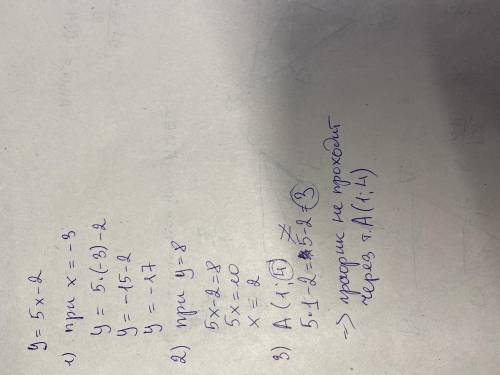 y = 5x - 2
1) при x = -3
y = 5·(-3) - 2
y = -15 - 2
y = -17
2) при y = 8
5x - 2 = 8
5x = 10
x = 2
3) A (1; 4)
5·1 - 2 = 5 - 2 = 3
=> график не проходит
через т. A (1; 4)